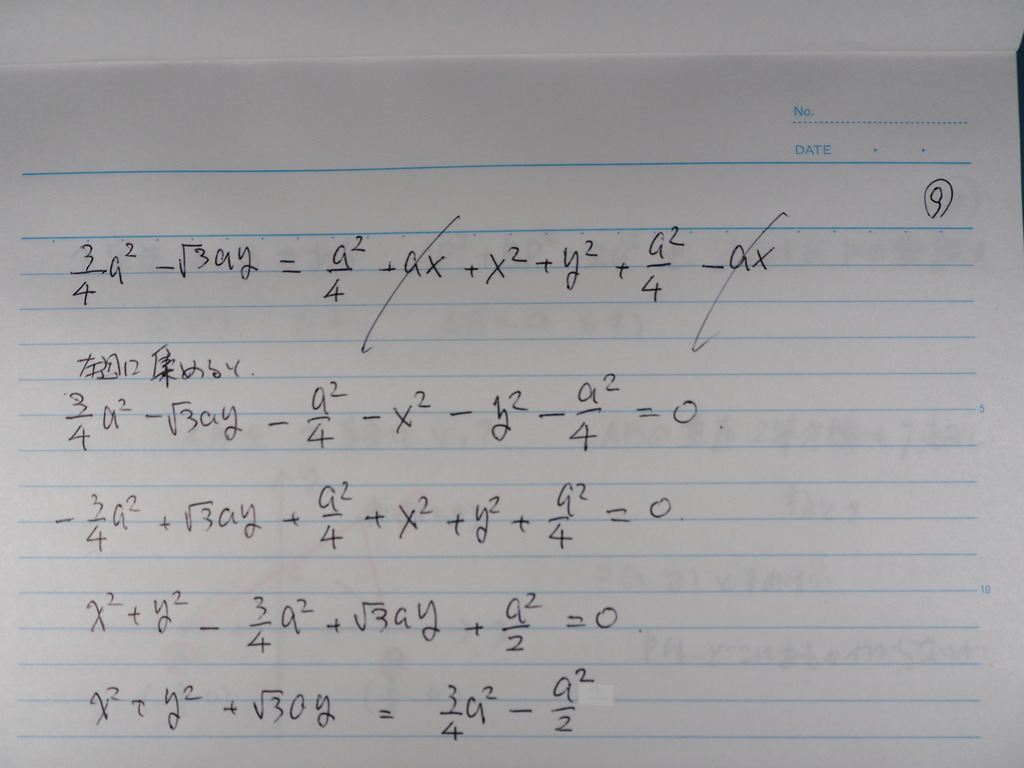 No.
DATE
⑨
3/4 a² - √3ay = a²/4 + ax + x² + y² + a²/4 - ax
左辺に集めると.
3/4 a² - √3ay - a²/4 - x² - y² - a²/4 = 0.
5
- 3/4 a² + √3ay + a²/4 + x² + y² + a²/4 = 0.
10
x² + y² - 3/4 a² + √3ay + a²/2 = 0.
x² + y² + √3ay = 3/4 a² - a²/2